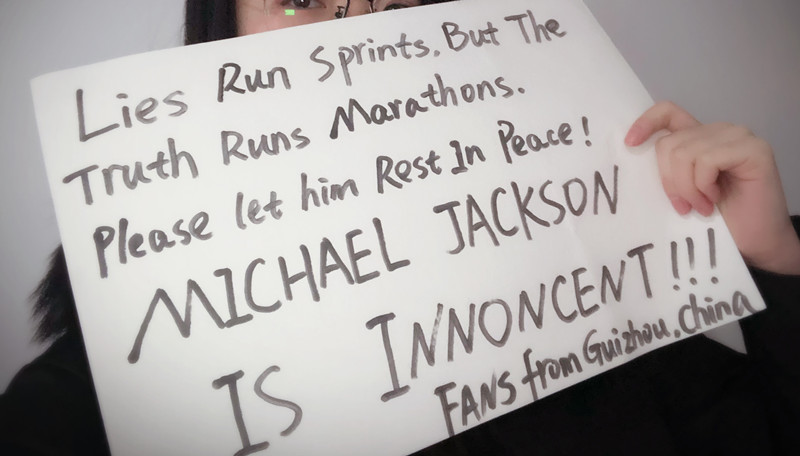 Lies Run Sprints. But The
Truth Runs Marathons.
Please let him Rest In Peace!
MICHAEL JACKSON
IS INNONCENT!!!
FANS from Guizhou. China